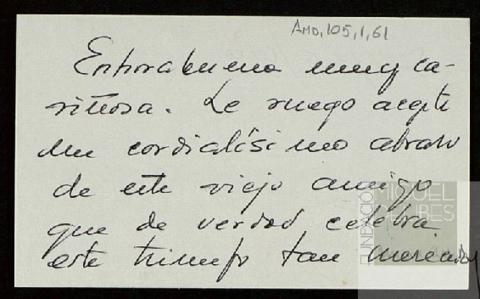 AMD,105,1,61
Enhorabuena muy ca-
riñosa. Le ruego acepte
un cordialísimo abrazo
de este viejo amigo
que de verdad celebra
este triunfo tan merecido
FUNDACIÓN
MIGUEL
DELIBES